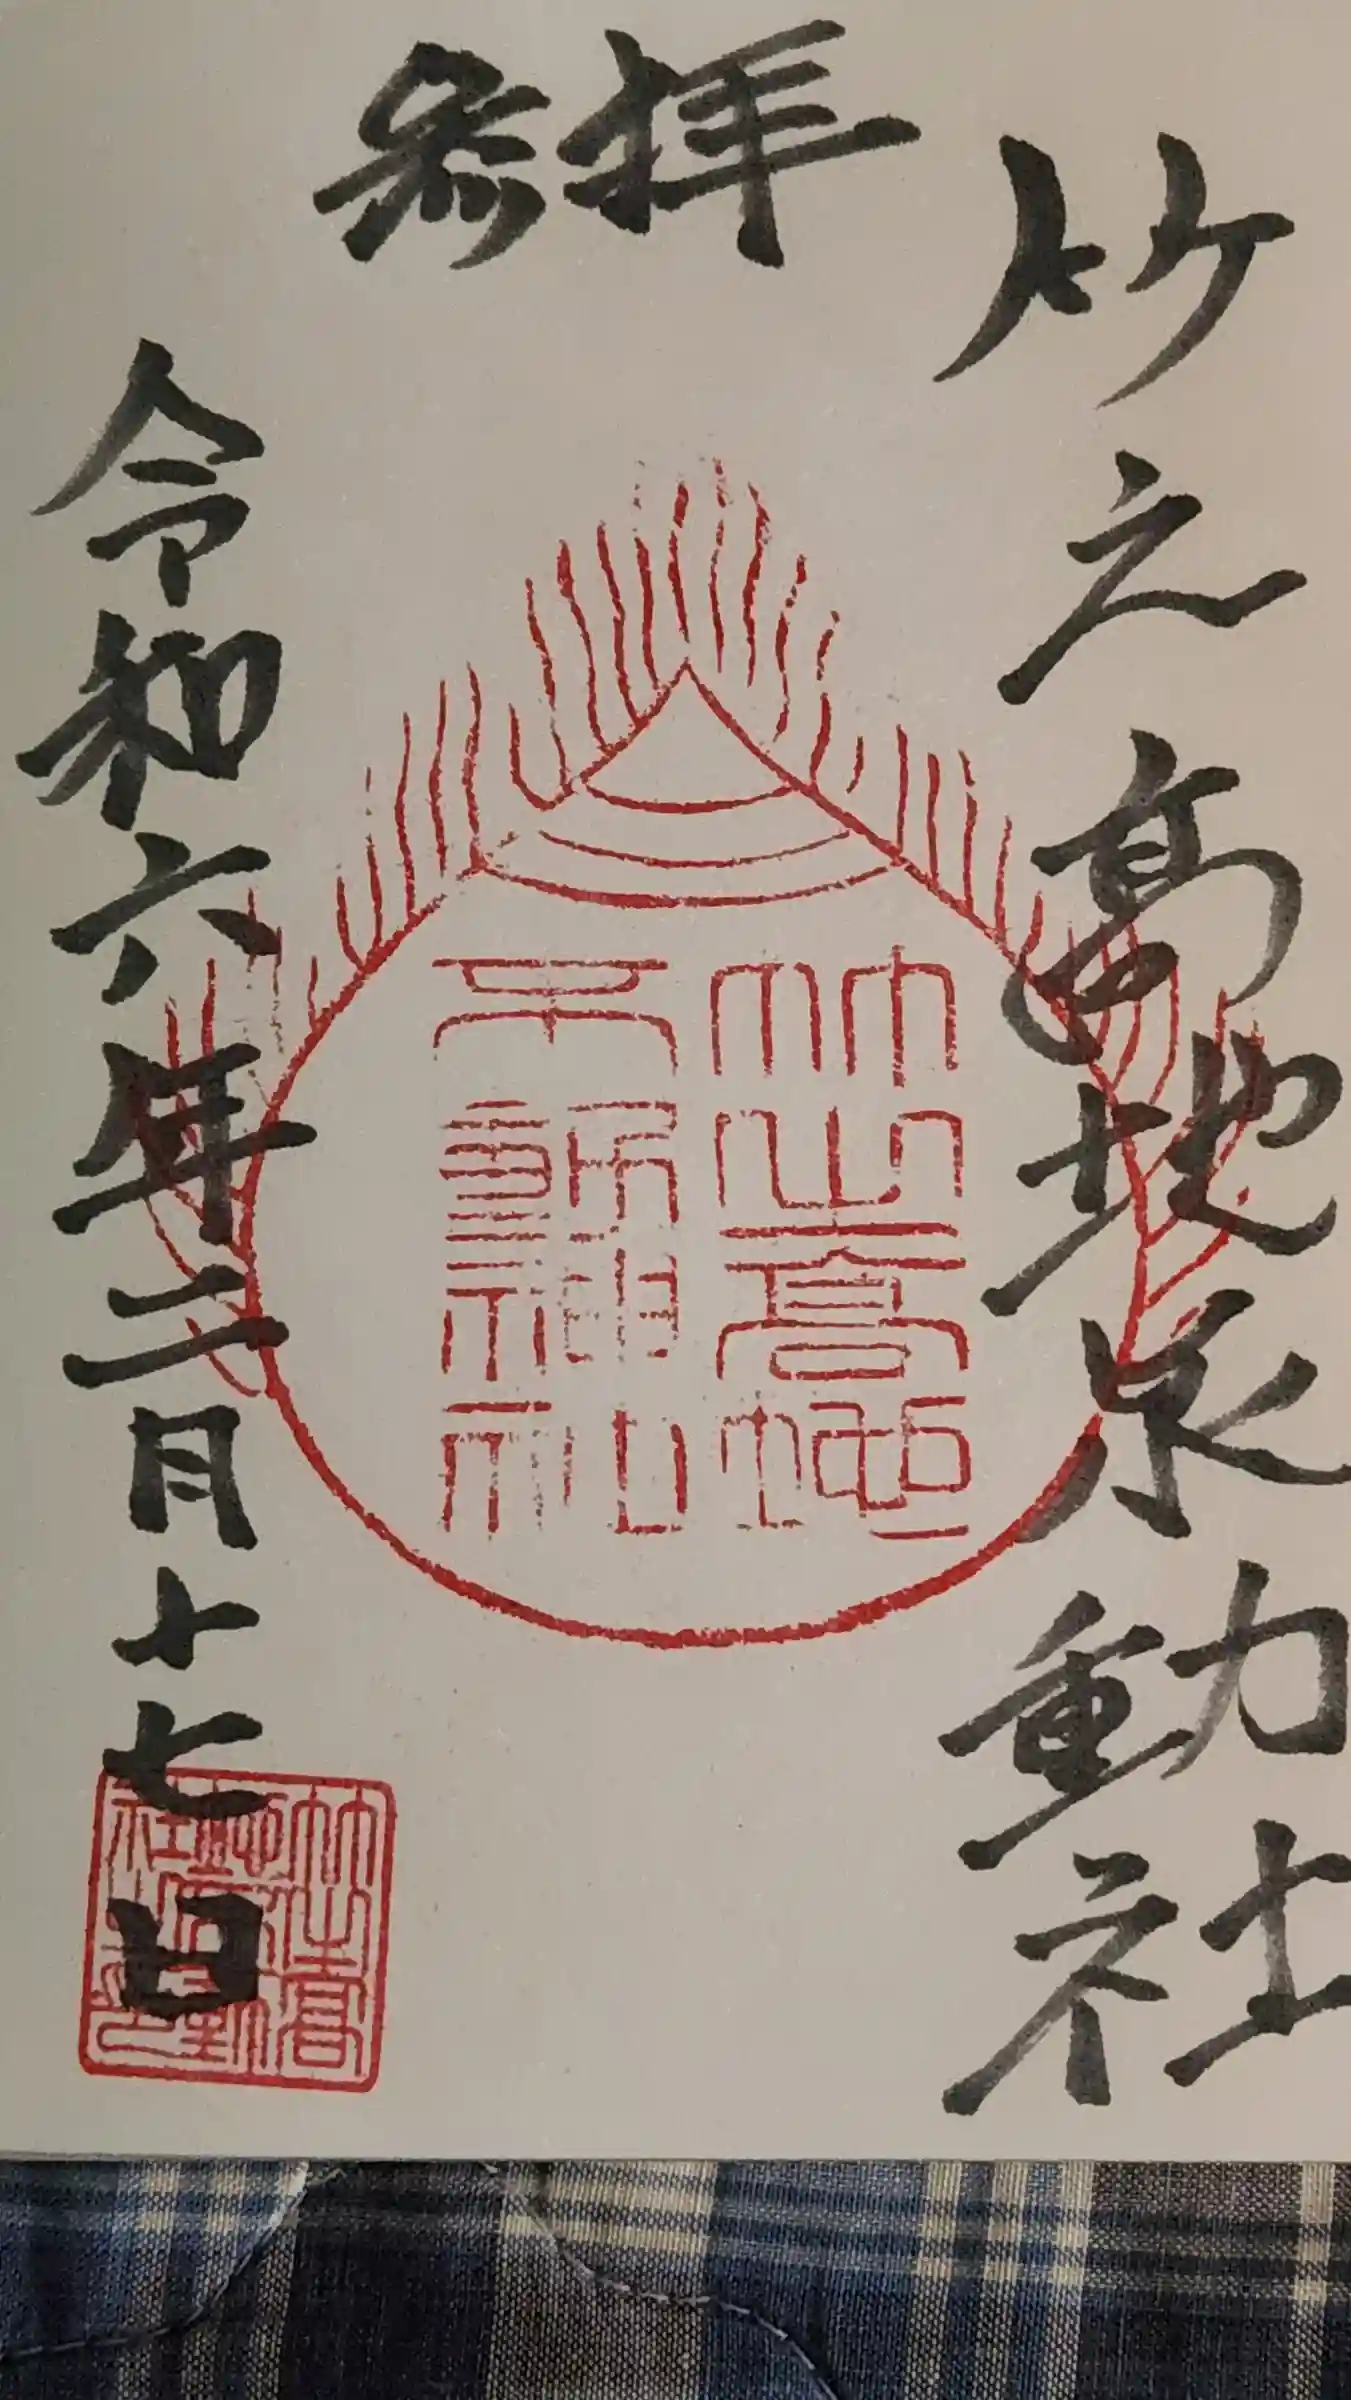 参拝
竹之高地不動社
竹之高地
不動神社
令和六年二月十七日
竹之高
地不動
社之印